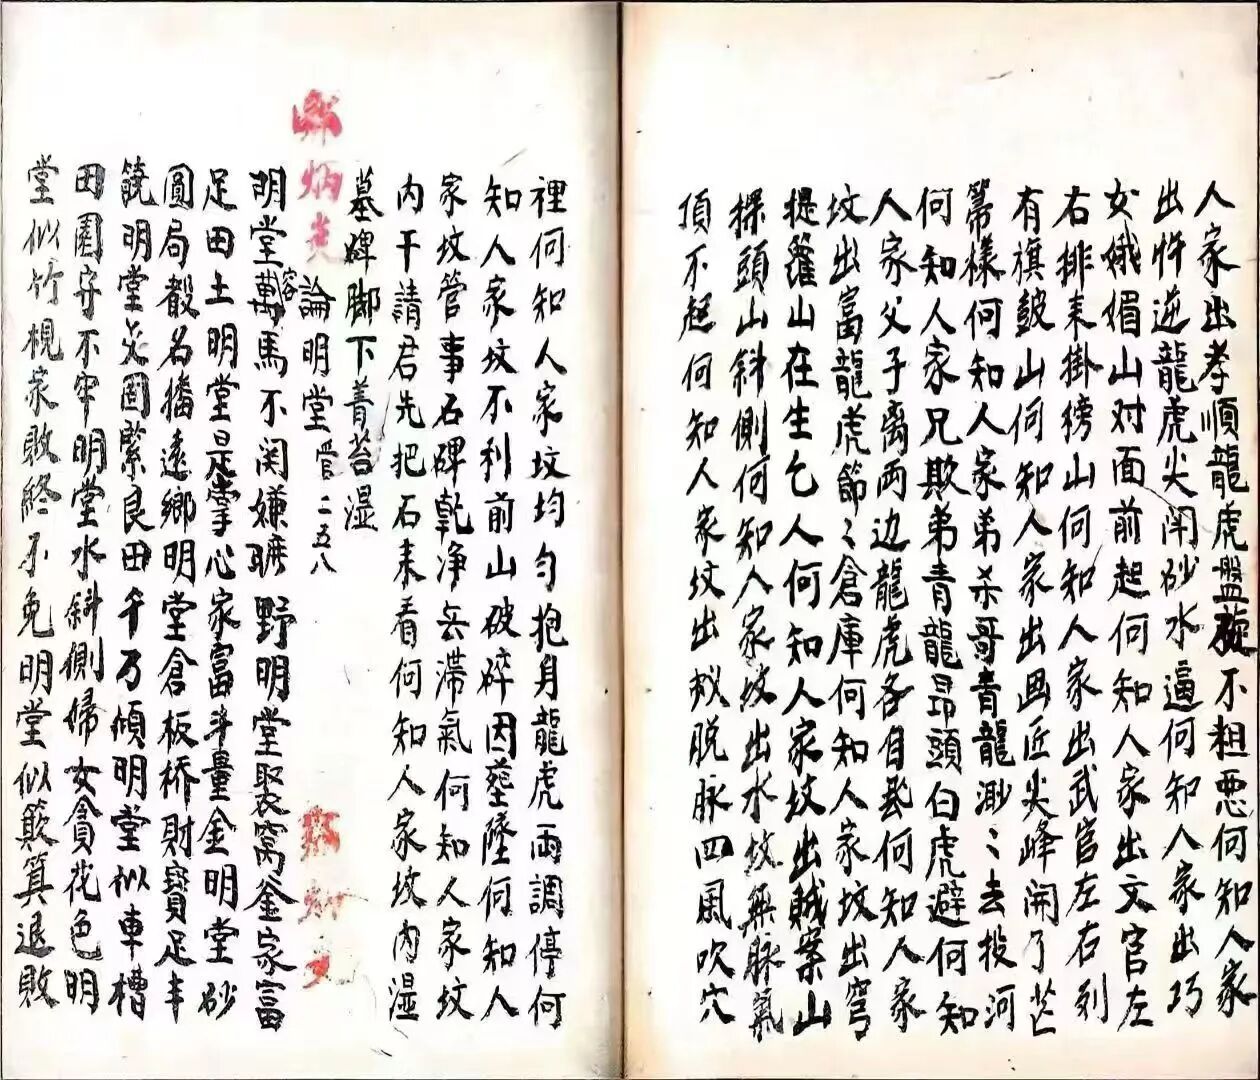 人家出孝順龍虎盤旋不粗恶何知人家
出忤逆龍虎尖闲砂水逼何知人家出巧
女娥媚山对面前起何知人家出文官左
右排来掛榜山何知人家出武官左右列
有旗鼓山何知人家出画匠尖峰開了芒
箒樣何知人家弟杀哥青龍渺〻去投河
何知人家兄欺弟青龍昂頭白虎避何知
人家父子离两边龍虎各自飛何知人家
坟出富龍虎節〻倉庫何知人家坟出窮
提籮山在生乞人何知人家坟出贼案山
探頭山斜側何知人家坟出水坟無脉氣
頂不起何知人家坟出蚁脱脉四風吹穴
裡何知人家坟均匀抱身龍虎两調停何
知人家坟不利前山破碎因墓墜何知人
家坟管事石碑乾净無滞氣何知人家坟
内干請君先把石来看何知人家坟内湿
墓碑脚下菁苔湿
論明堂 管二五八
明堂容萬馬不闵嫌曠野明堂聚窝釜家富
足田土明堂是掌心家富斗量金明堂砂
圓局穀名播遠鄉明堂倉板桥財寶足丰
饒明堂交固縈良田千乃傾明堂似車槽
田園守不牢明堂水斜側婦女貪花色明
堂似竹梘家敗終不免明堂似欺箕退敗